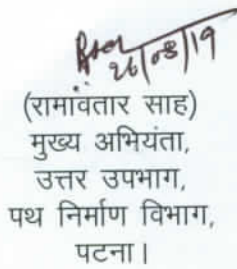 26/08/19
(रामावतार साह)
मुख्य अभियंता,
उत्तर उपभाग,
पथ निर्माण विभाग,
पटना।